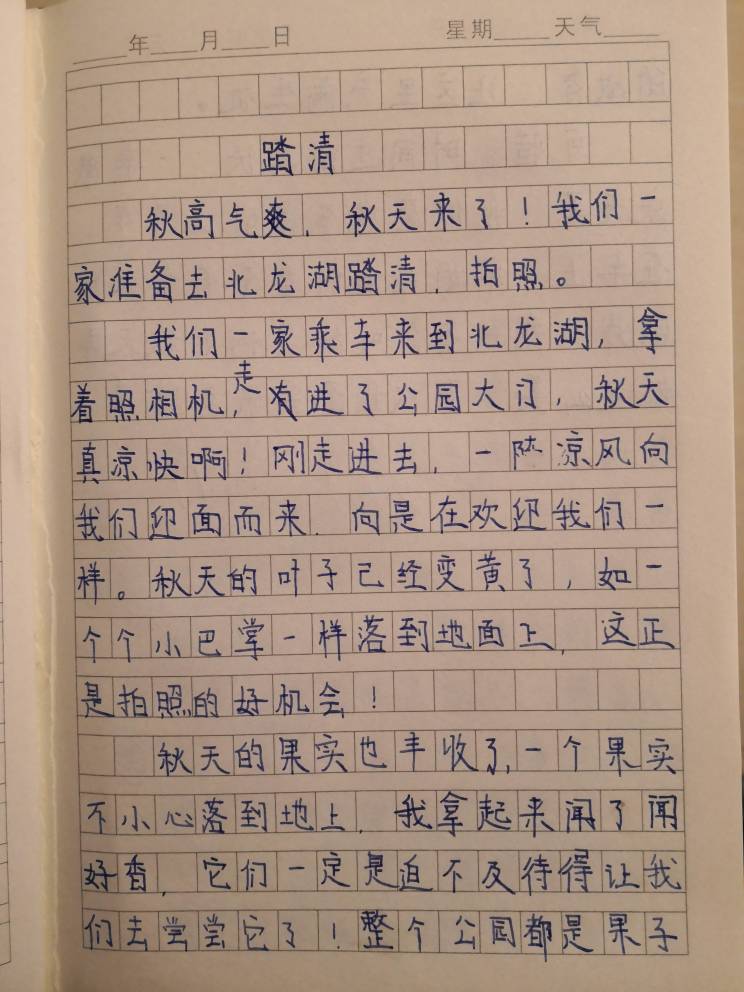 年 月 日 星期 天气
踏清
秋高气爽，秋天来了！我们一
家准备去北龙湖踏清，拍照。
我们一家乘车来到北龙湖，拿
着照相机，走有进了公园大门，秋天
真凉快啊！刚走进去，一阵凉风向
我们迎面而来，向是在欢迎我们一
样。秋天的叶子已经变黄了，如一
个个小巴掌一样落到地面上，这正
是拍照的好机会！
秋天的果实也丰收了，一个果实
不小心落到地上，我拿起来闻了闻
好香，它们一定是迫不及待得让我
们去尝尝它了！整个公园都是果子